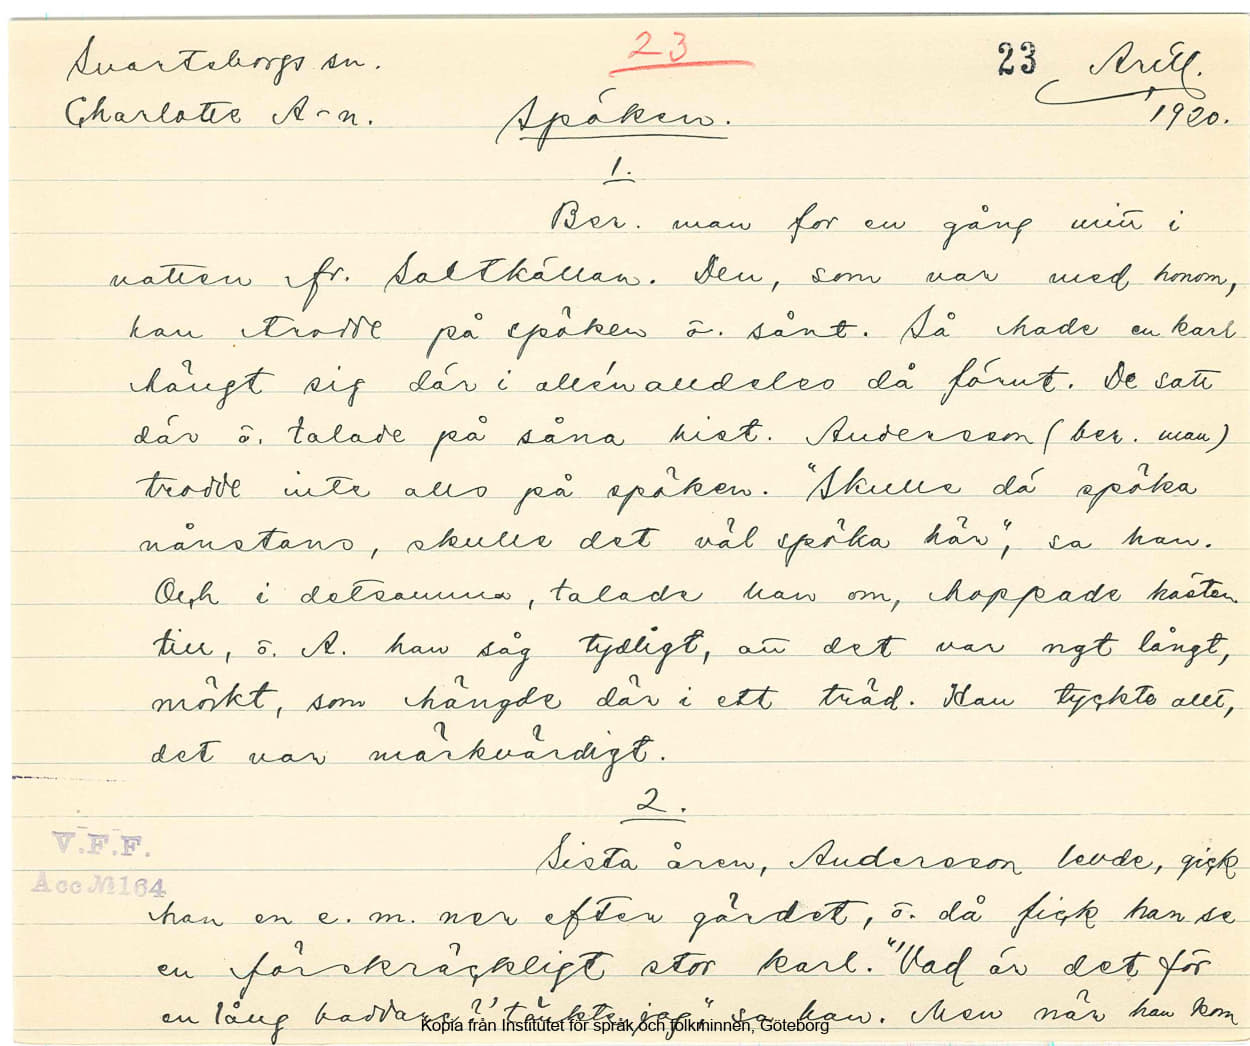 Svarteborgs sn.
23
23
Arill.
Charlotte A-n.
Spöken.
1920.
1.
Ber. man for en gång mitt i
natten fr. Saltkällan. Den, som var med honom,
han trodde på spöken o. sånt. Så hade en karl
hängt sig där i allén alldeles då förut. De satt
där o. talade på såna hist. Andersson (ber. man)
trodde inte alls på spöken. "Skulle då spöka
nånstans, skulle det väl spöka här", sa han.
Och i detsamma, talade han om, hoppade hästen
till, o. A. han såg tydligt, att det var ngt långt,
mörkt, som hängde där i ett träd. Han tyckte allt,
det var märkvärdigt.
2.
V.F.F.
Acc № 164
Sista åren, Andersson levde, gick
han en e. m. ner efter gärdet, o. då fick han se
en förskräckligt stor karl. "'Vad är det för
en lång baddare?' tänkte jag", sa han. Men när han kom
Kopia från Institutet för språk och folkminnen, Göteborg